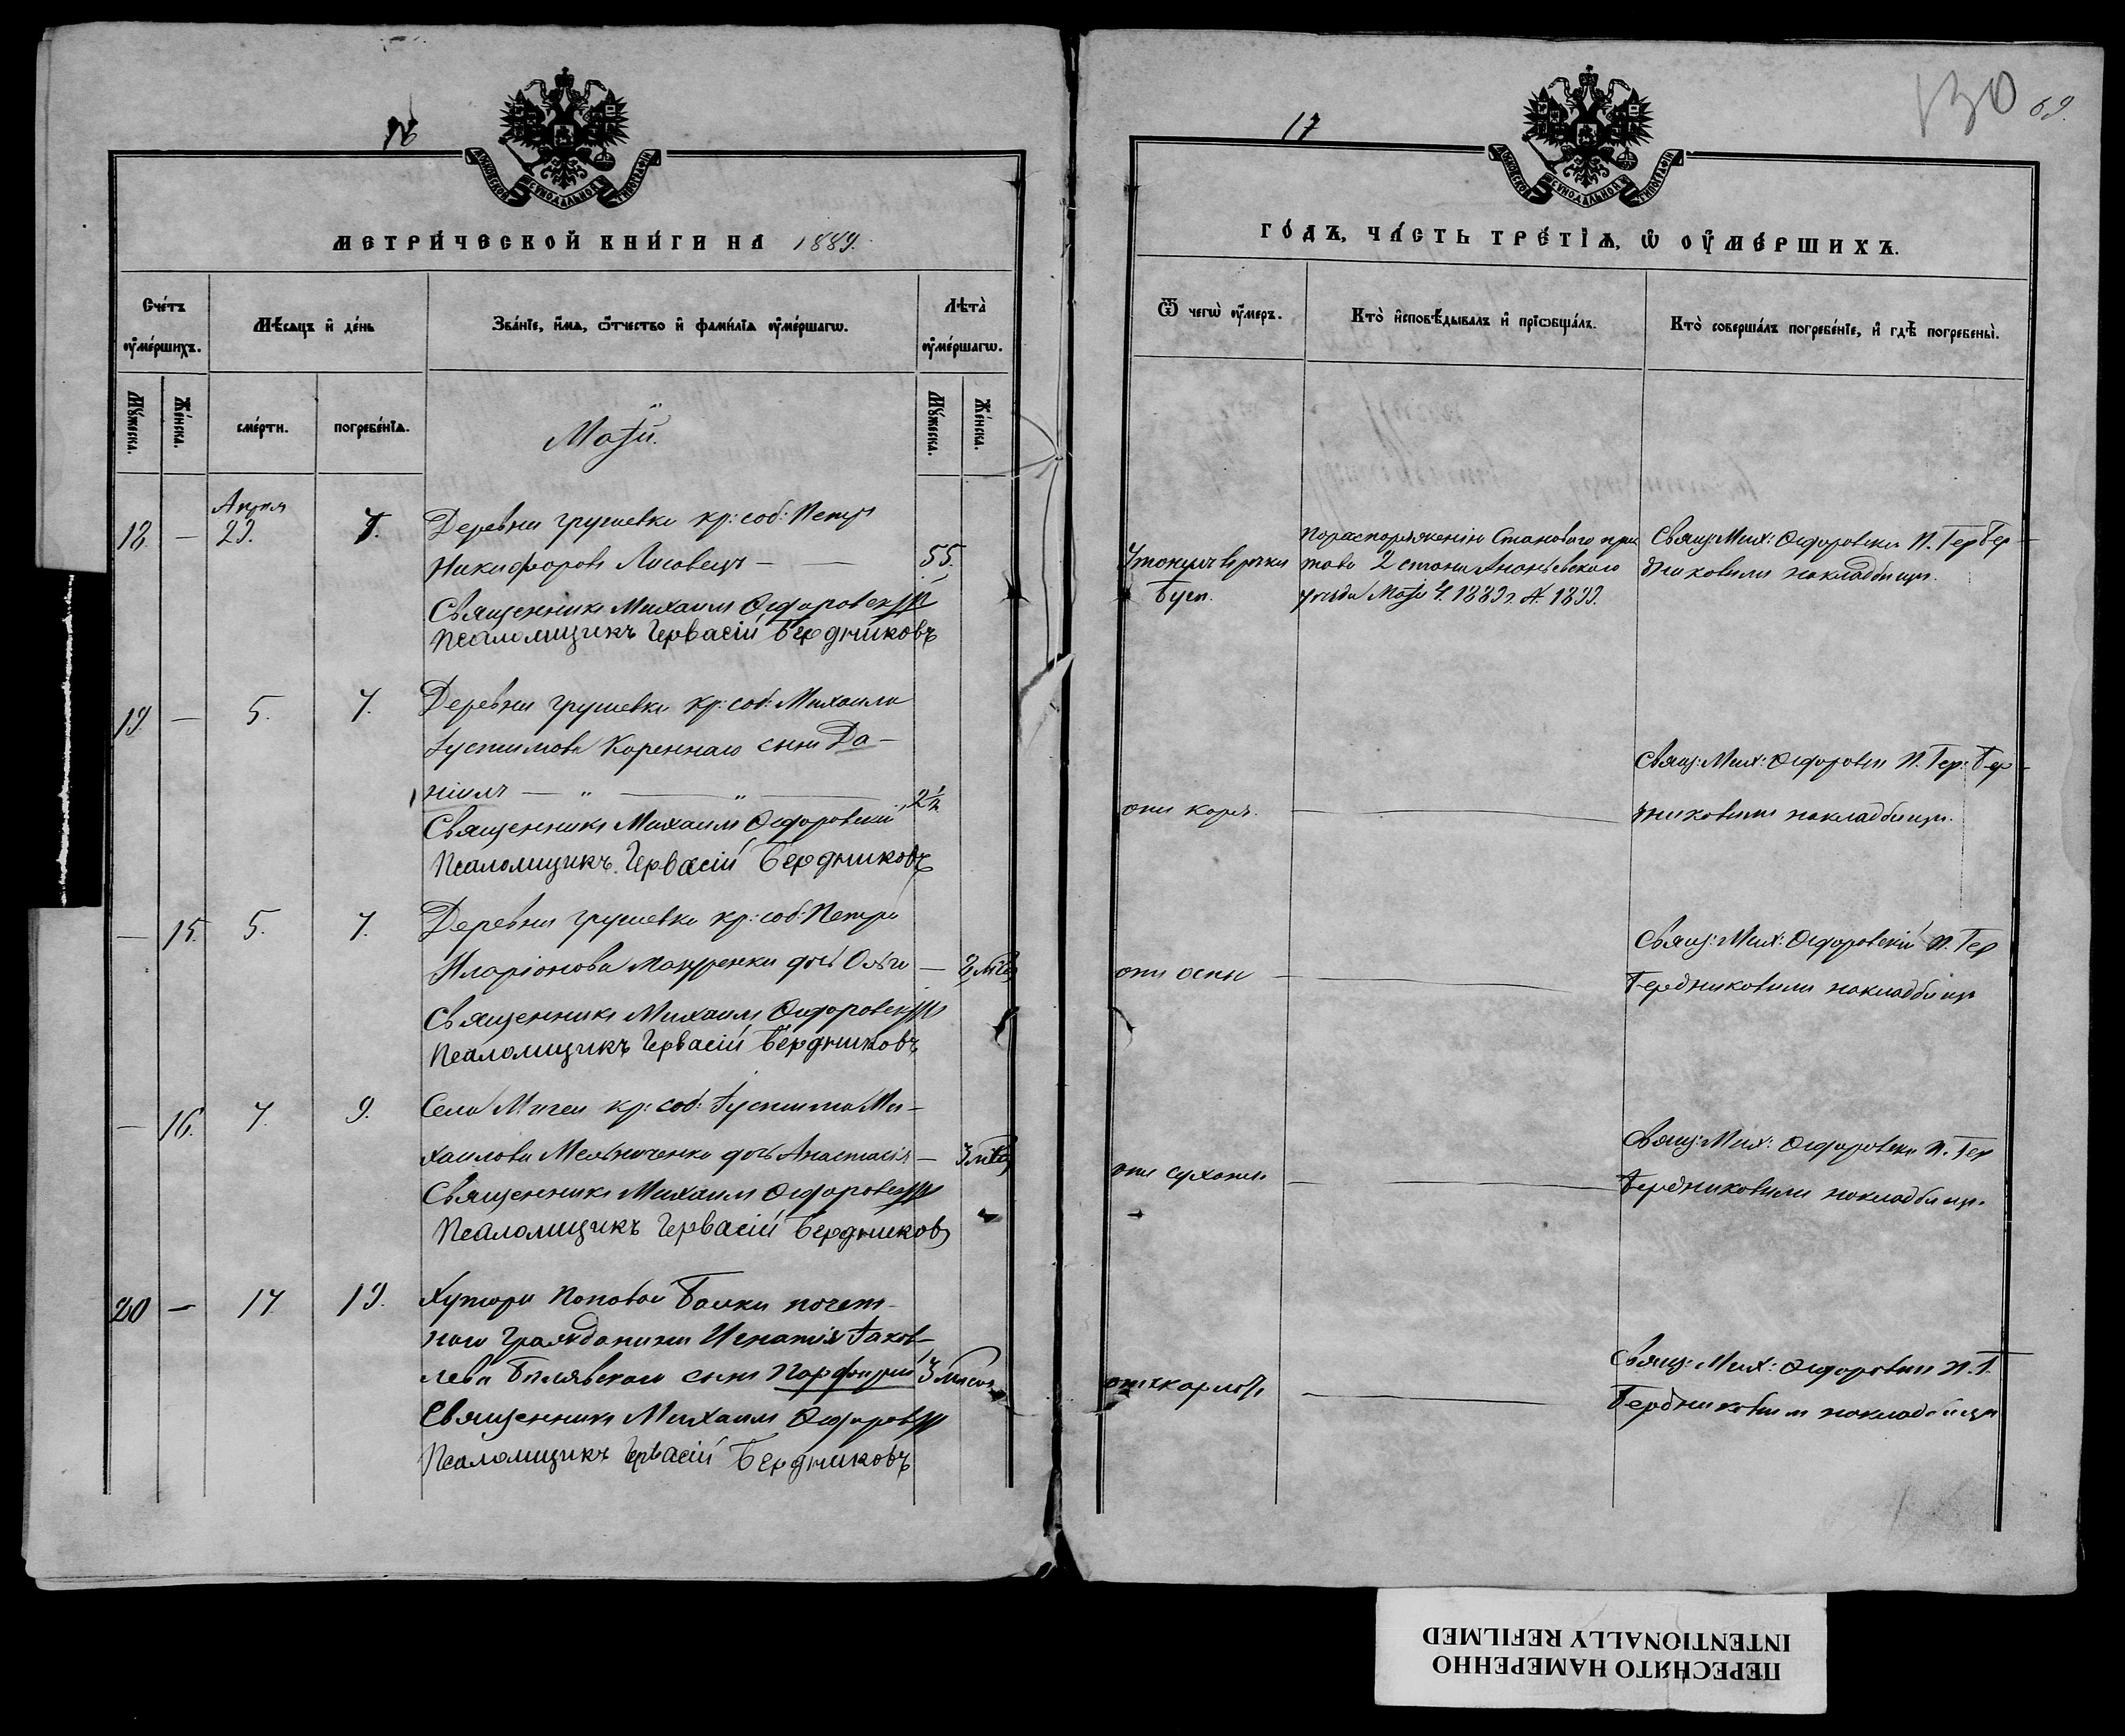 16
МОСКОВСКОЙ СѴНОДАЛЬНОЙ ТИПОГРАФІИ
МЕТРИ́ЧЕСКОЙ КНИ́ГИ НА 1889.
Сче́тъ ᲂу҆ме́ршихъ.
Мѣ́сѧцъ и҆ де́нь
Зва́нїе, и҆́мѧ, ѻ҆́тчество и҆ фамі́лїѧ ᲂу҆ме́ршагѡ.
Лѣта̀ ᲂу҆ме́ршагѡ.
Мꙋ́жеска.
Же́нска.
сме́рти.
погребе́нїѧ.
Мꙋ́жеска.
Же́нска.
Май.
Апрѣля
18. — 29. Деревни Грушевки кр: соб: Петръ
Никифоровъ Лисовецъ — — 55.
Священникъ Михаилъ Ѳедоровскій
Псаломщикъ Гервасій Бердниковъ
19. — 5. 7. Деревни Грушевки кр: соб: Михаила
Іустимова Кореннаго сынъ Да-
ніилъ — „ — „ — 2½
Священникъ Михаилъ Ѳедоровскій
Псаломщикъ Гервасій Бердниковъ
— 15. 5. 7. Деревни Грушевки кр: соб: Петра
Иларіонова Мазуренки дочь Ольга —
Священникъ Михаилъ Ѳедоровскій
Псаломщикъ Гервасій Бердниковъ
— 16. 7. 9. Села Мигеи кр: соб: Іустима Ми-
хаилова Мельниченка дочь Анастасія —
Священникъ Михаилъ Ѳедоровскій
Псаломщикъ Гервасій Бердниковъ
20 — 17. 19. Хутора Поповой Балки почет-
наго гражданина Игнатія Іаков-
лева Билявскаго сынъ Порфирій 3 мѣсяц
Священникъ Михаилъ Ѳедоровскій
Псаломщикъ Гервасій Бердниковъ
17
130 69.
МОСКОВСКОЙ СѴНОДАЛЬНОЙ ТИПОГРАФІИ
ГО́ДЪ, ЧА́СТЬ ТРЕ́ТЇѦ, Ѡ҆ ОУ҆МЕ́РШИХЪ.
Ѿ чегѡ̀ ᲂу҆́меръ.
Кто̀ и҆сповѣ́дывалъ и҆ прїѡбща́лъ.
Кто̀ соверша́лъ погребе́нїе, и҆ гдѣ̀ погребены̀.
Утонулъ въ рѣки
Бугъ.
По распоряженію Становаго при
става 2 стана Ананьевскаго
уѣзда Маія 4. 1889 г. №. 1899.
Свящ: Мих: Ѳедоровскій П. Гер Бер-
дниковымъ на кладбищи.
отъ кори. — Свящ: Мих: Ѳедоровск П. Гер: Бер-
дниковымъ на кладбищи.
отъ оспы — Свящ: Мих: Ѳедоровскій П. Гер
Бердниковымъ на кладбищи
отъ сухоты — Свящ: Мих: Ѳедоровскій П. Гер
Бердниковымъ на кладбищи.
— Свящ: Мих: Ѳедоровск П. Г.
Бердниковым на кладбищи
ПЕРЕСНЯТО НАМЕРЕННО
INTENTIONALLY REFILMED